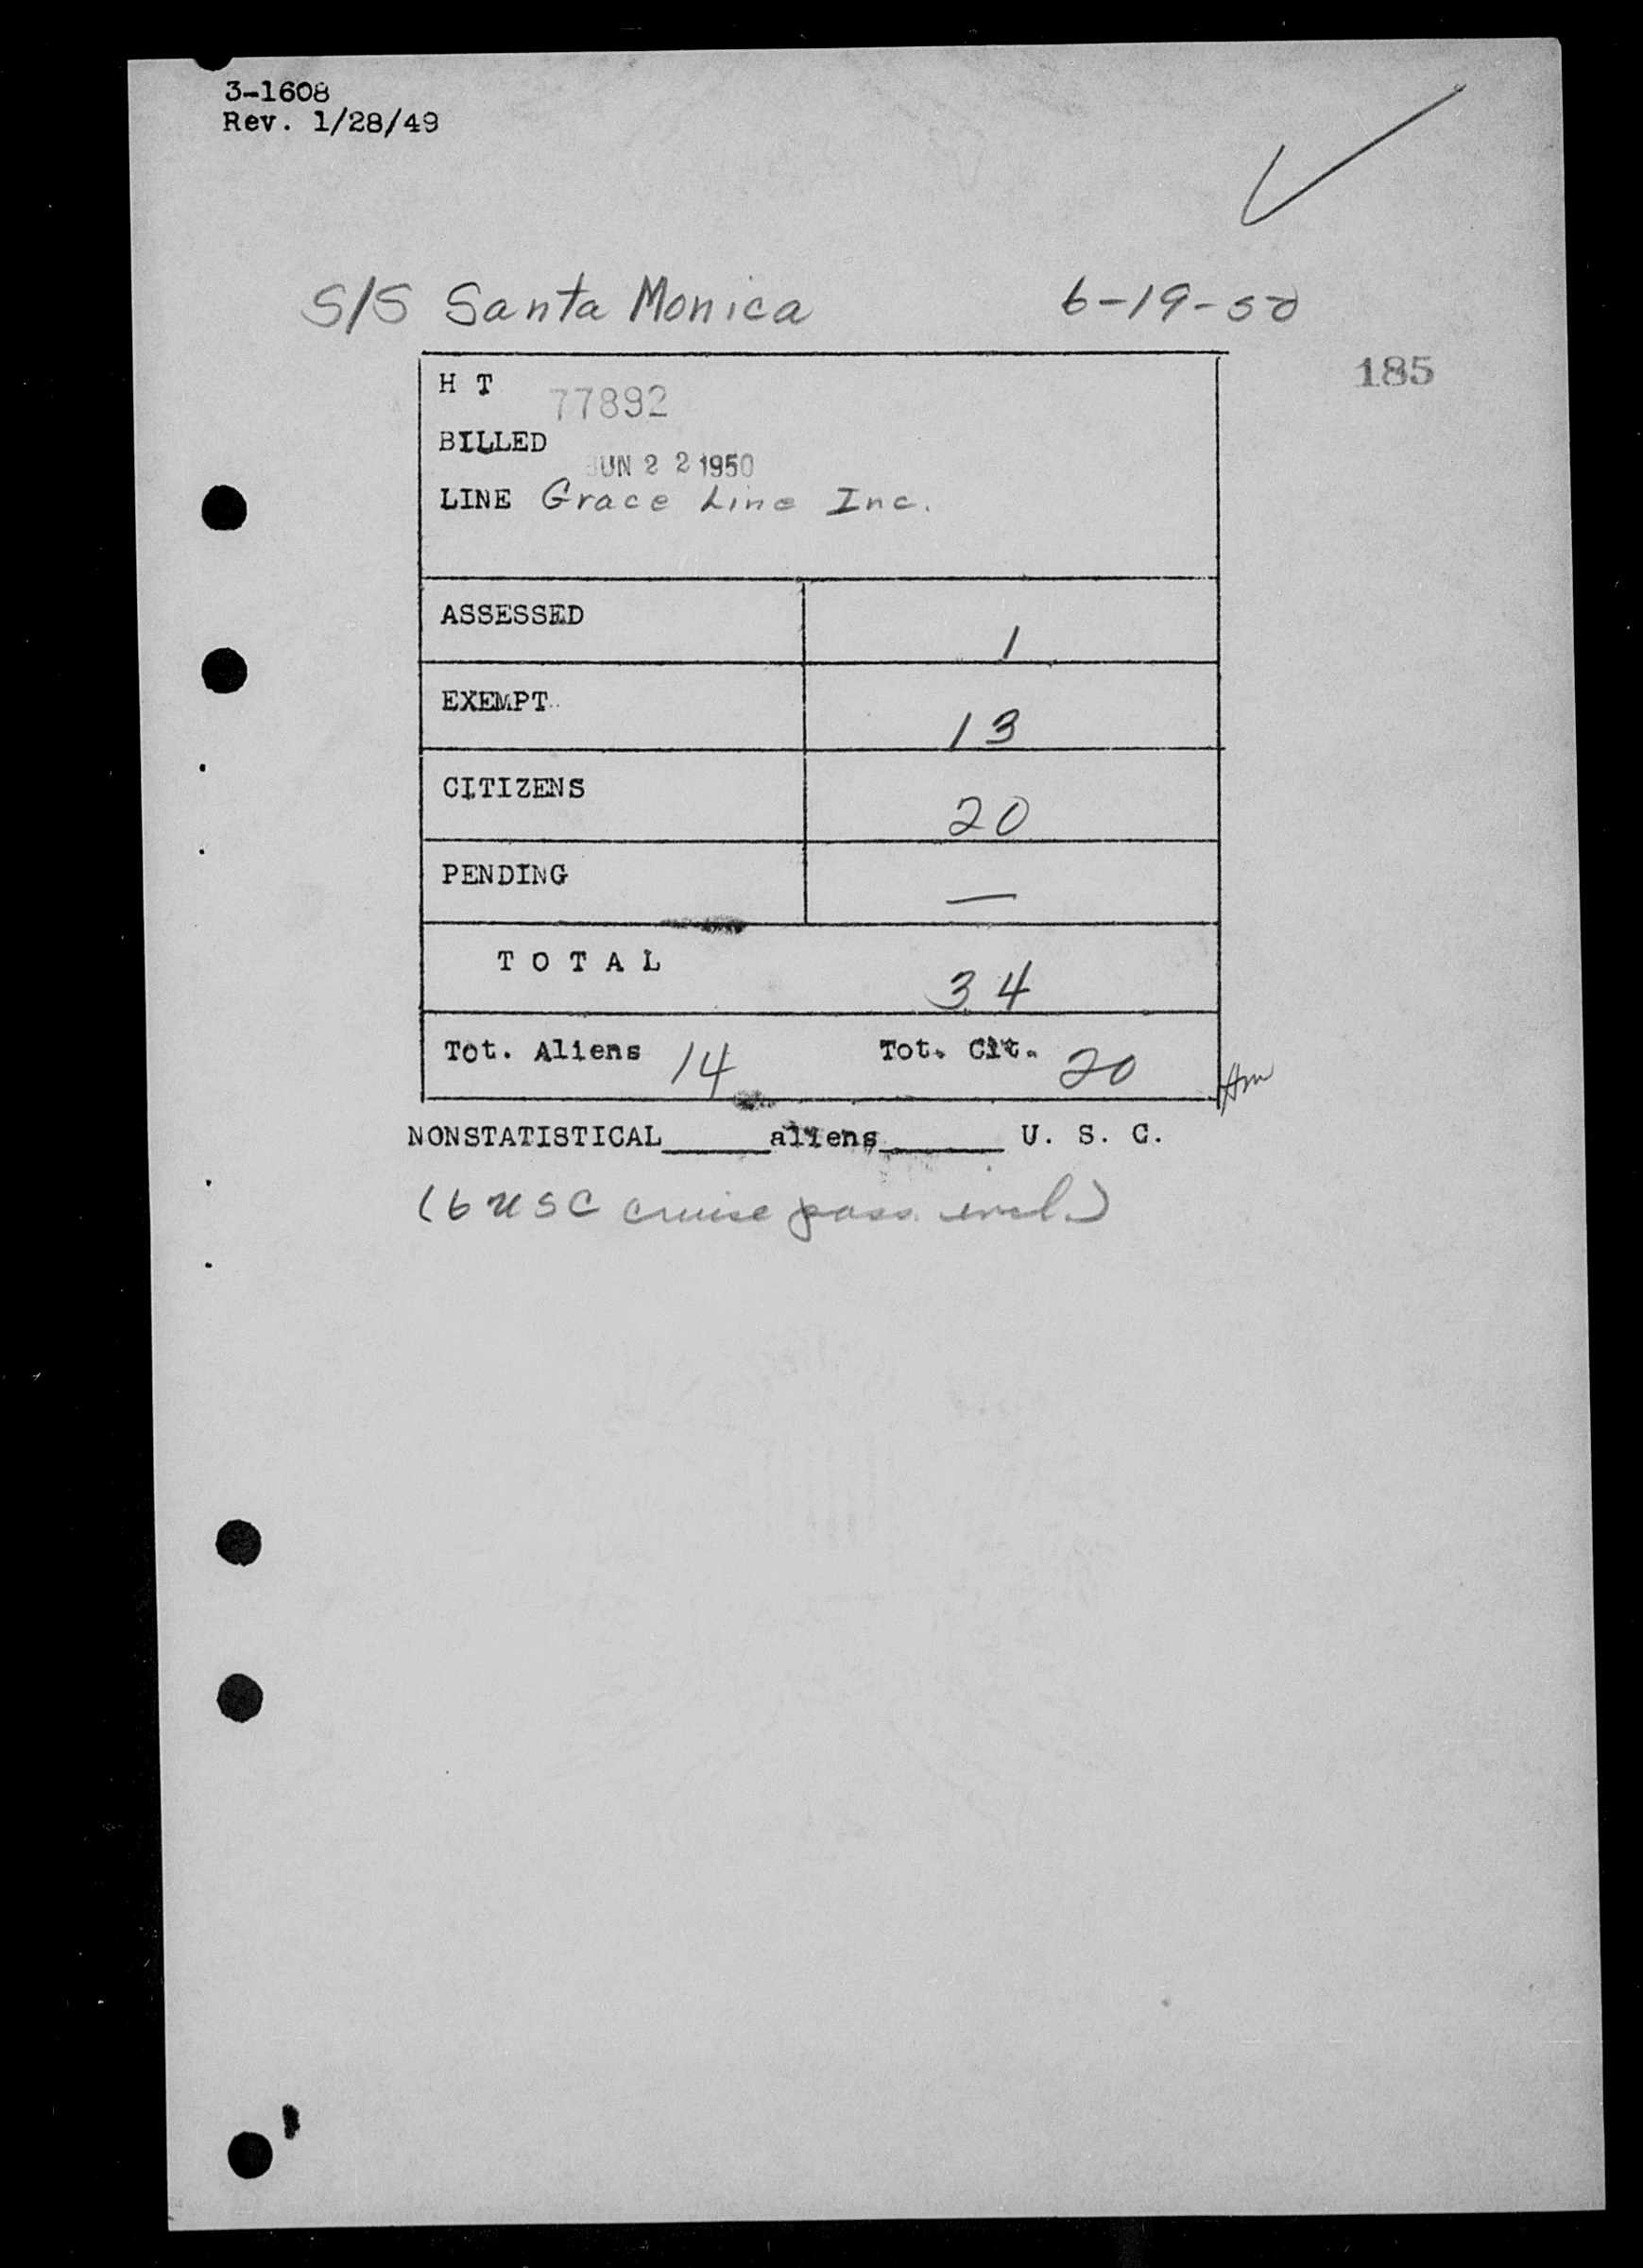 3-1608
Rev. 1/28/49
S/S Santa Monica 6-19-50
185
H T 77892
BILLED
JUN 22 1950
LINE Grace Line Inc.
ASSESSED 1
EXEMPT 13
CITIZENS 20
PENDING —
T O T A L 34
Tot. Aliens 14 Tot. Cit. 20
NONSTATISTICAL_____aliens______ U. S. C.
(6 USC cruise pass. incl.)